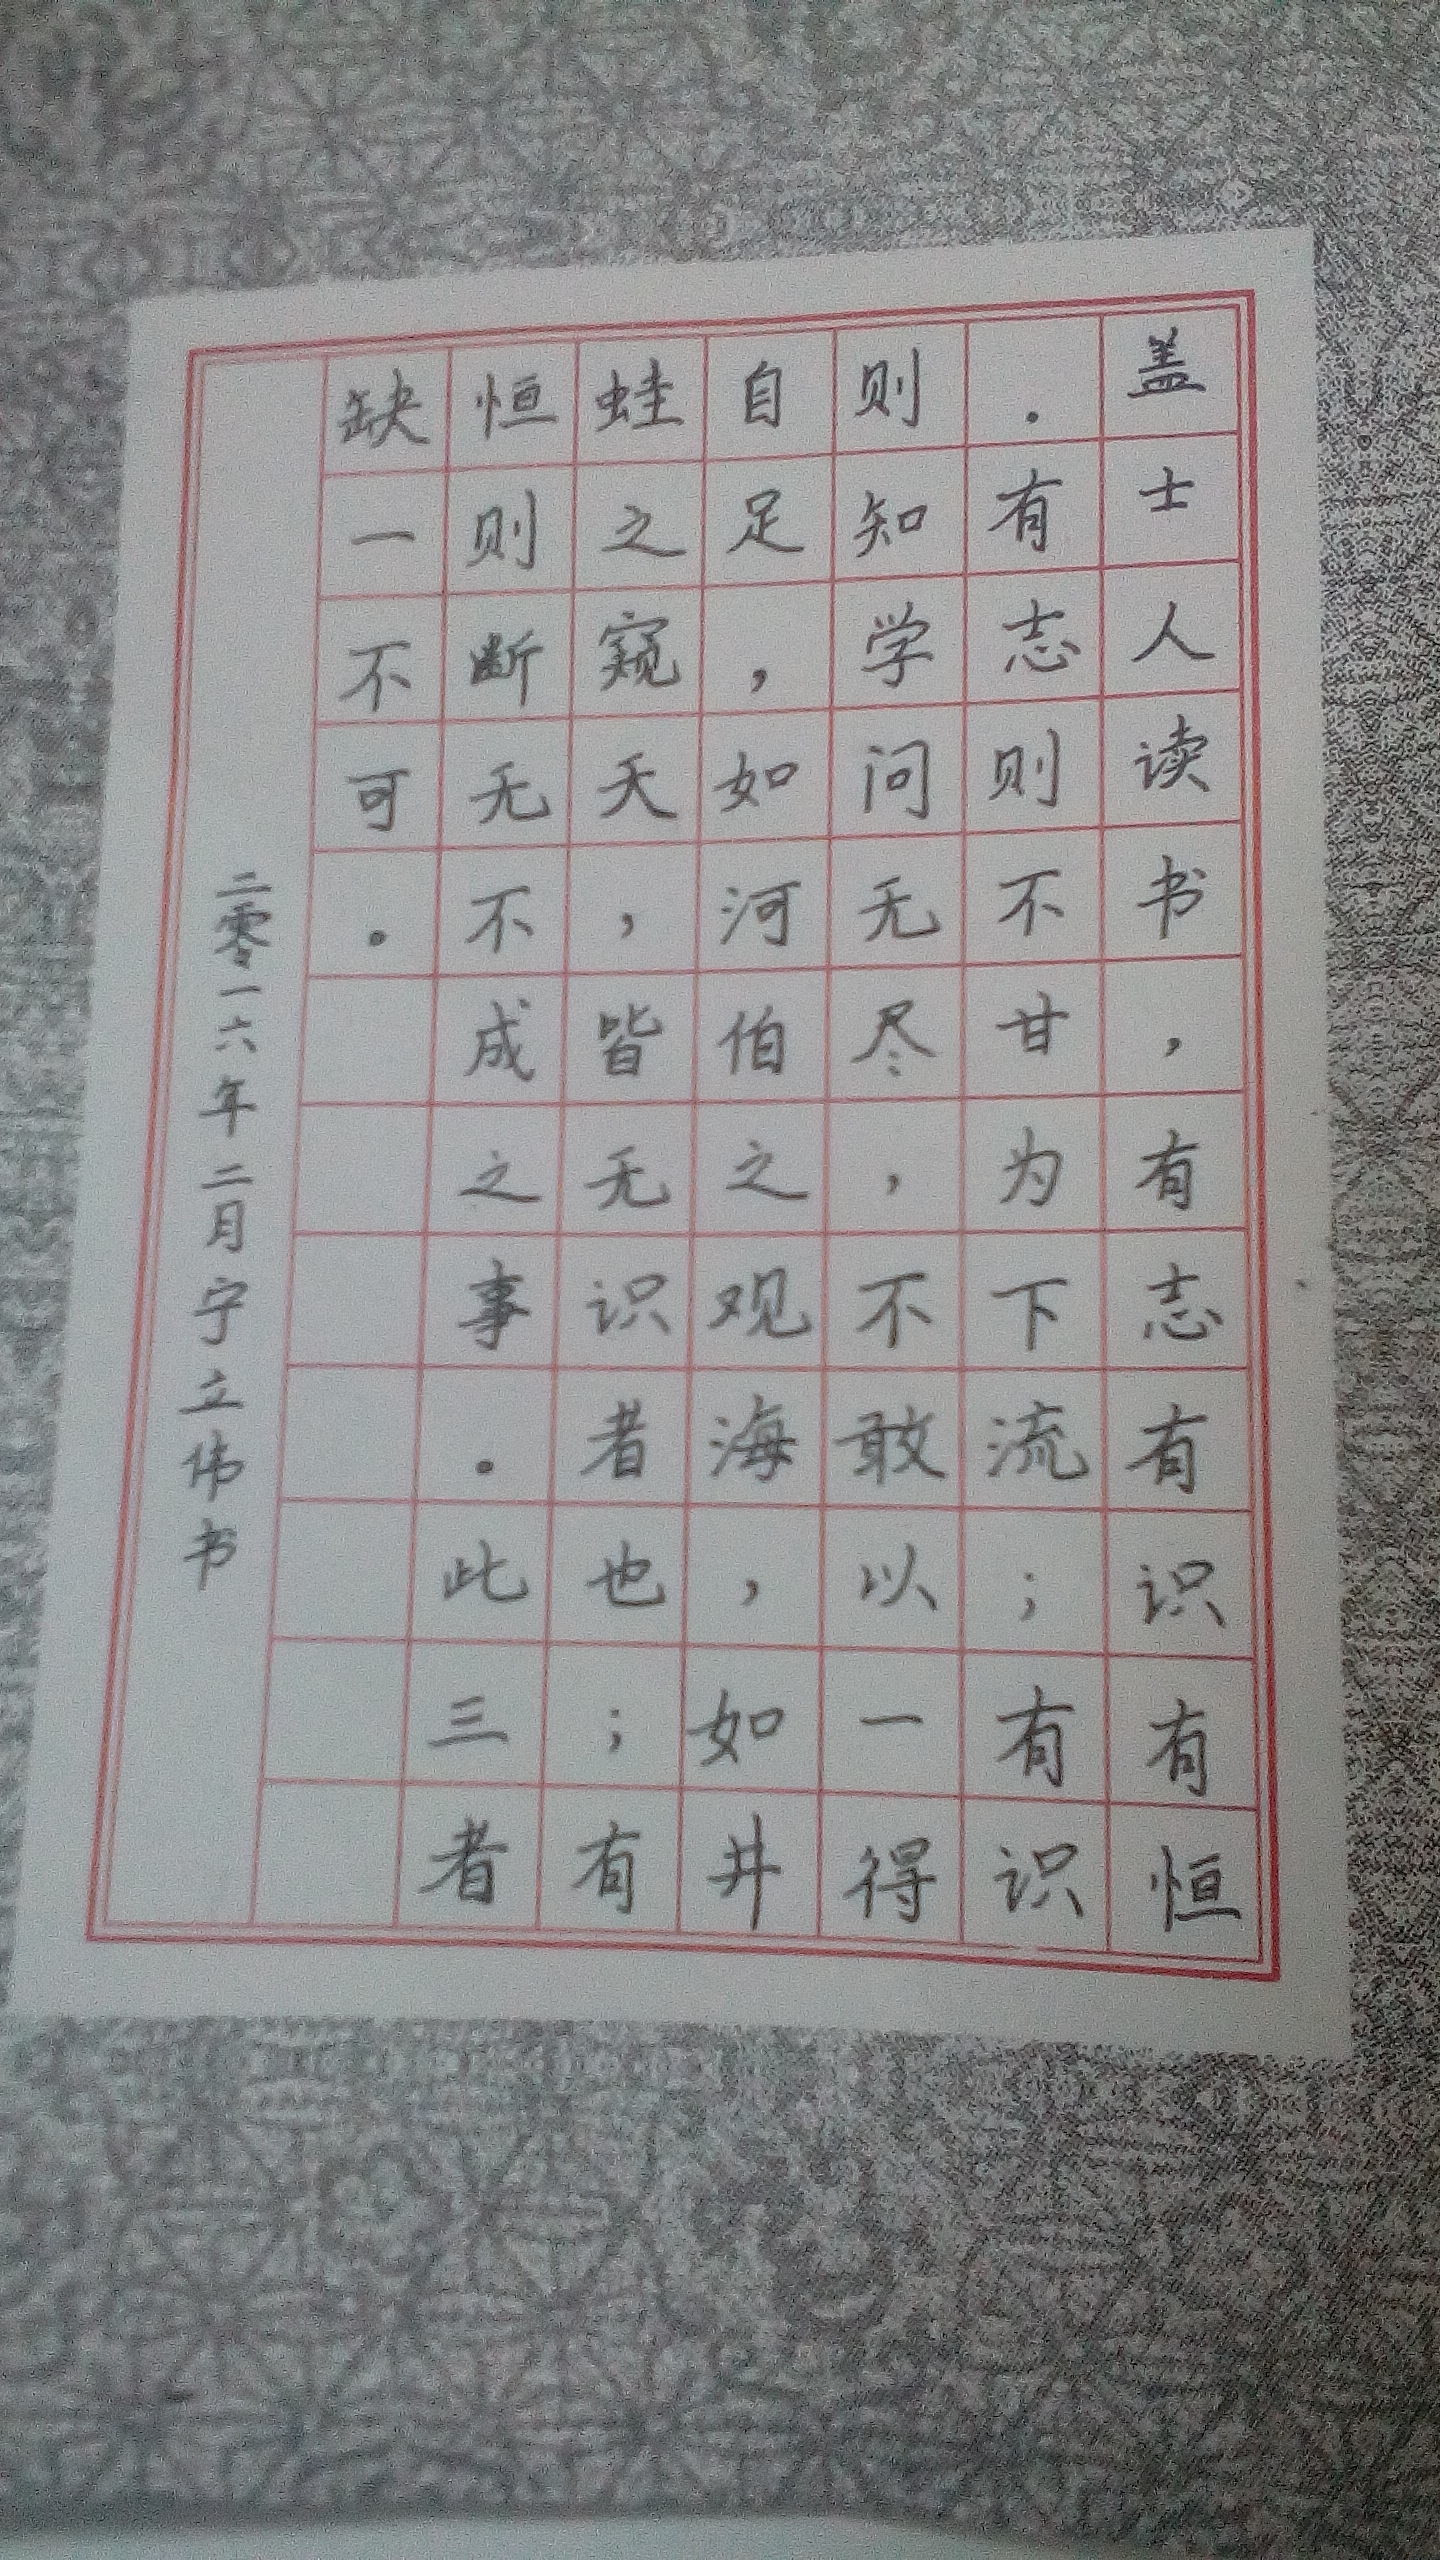 盖士人读书，有志有识有恒
.有志则不甘为下流；有识
则知学问无尽，不敢以一得
自足，如河伯之观海，如井
蛙之窥天，皆无识者也；有
恒则断无不成之事.此三者
缺一不可.
二零一六年二月宁立伟书